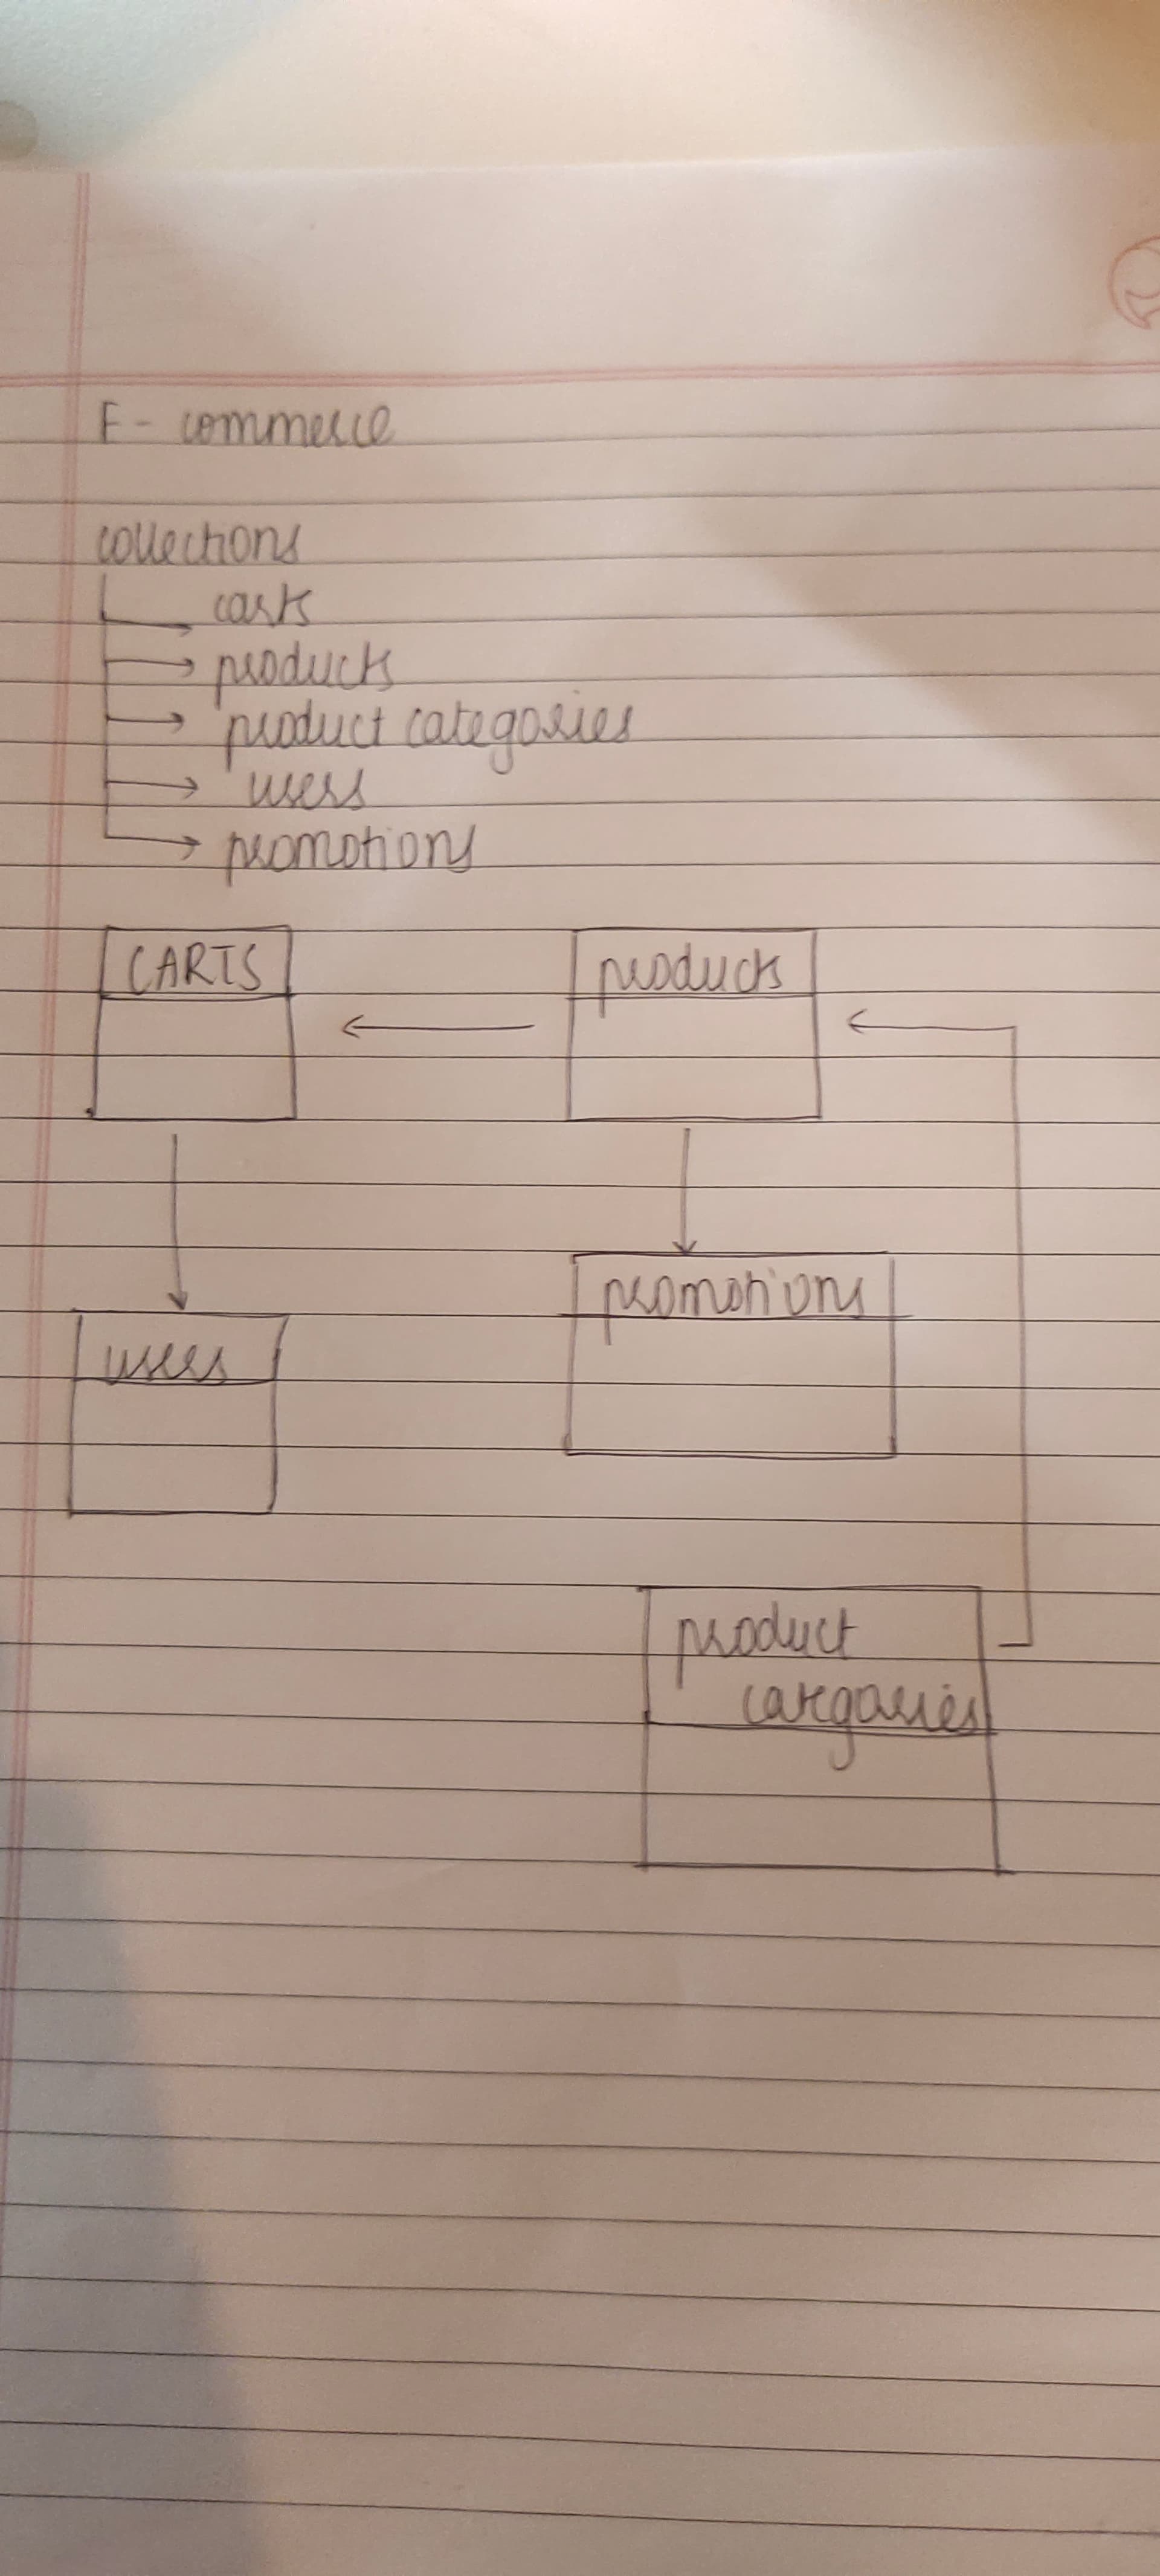 E - commerce
collections
carts
products
product categories
users
promotions
CARTS
products
promotions
users
product
categories